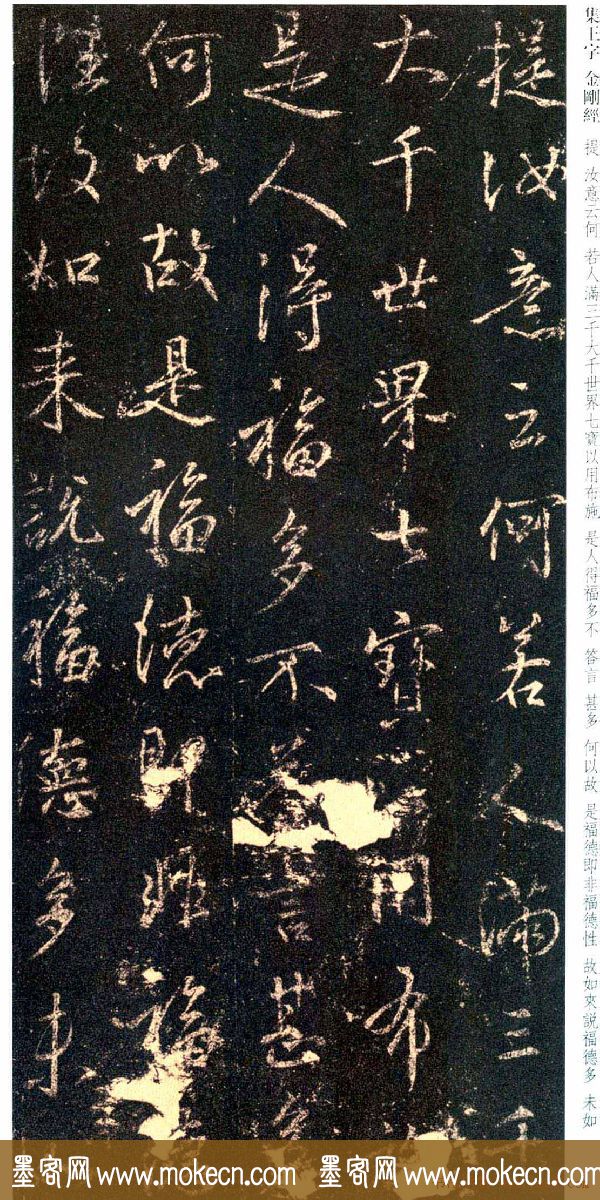 集王字 金剛經 提 汝意云何 若人滿三千大千世界七寶以用布施 是人得福多不 答言 甚多 何以故 是福德即非福德性 故如來說福德多 未如
提汝意云何若人滿三千
大千世界七寶以用布
是人得福多不答言甚多
何以故是福德即非福
性故如来說福德多未
墨客网 www.mokecn.com 墨客网 www.mokecn.com